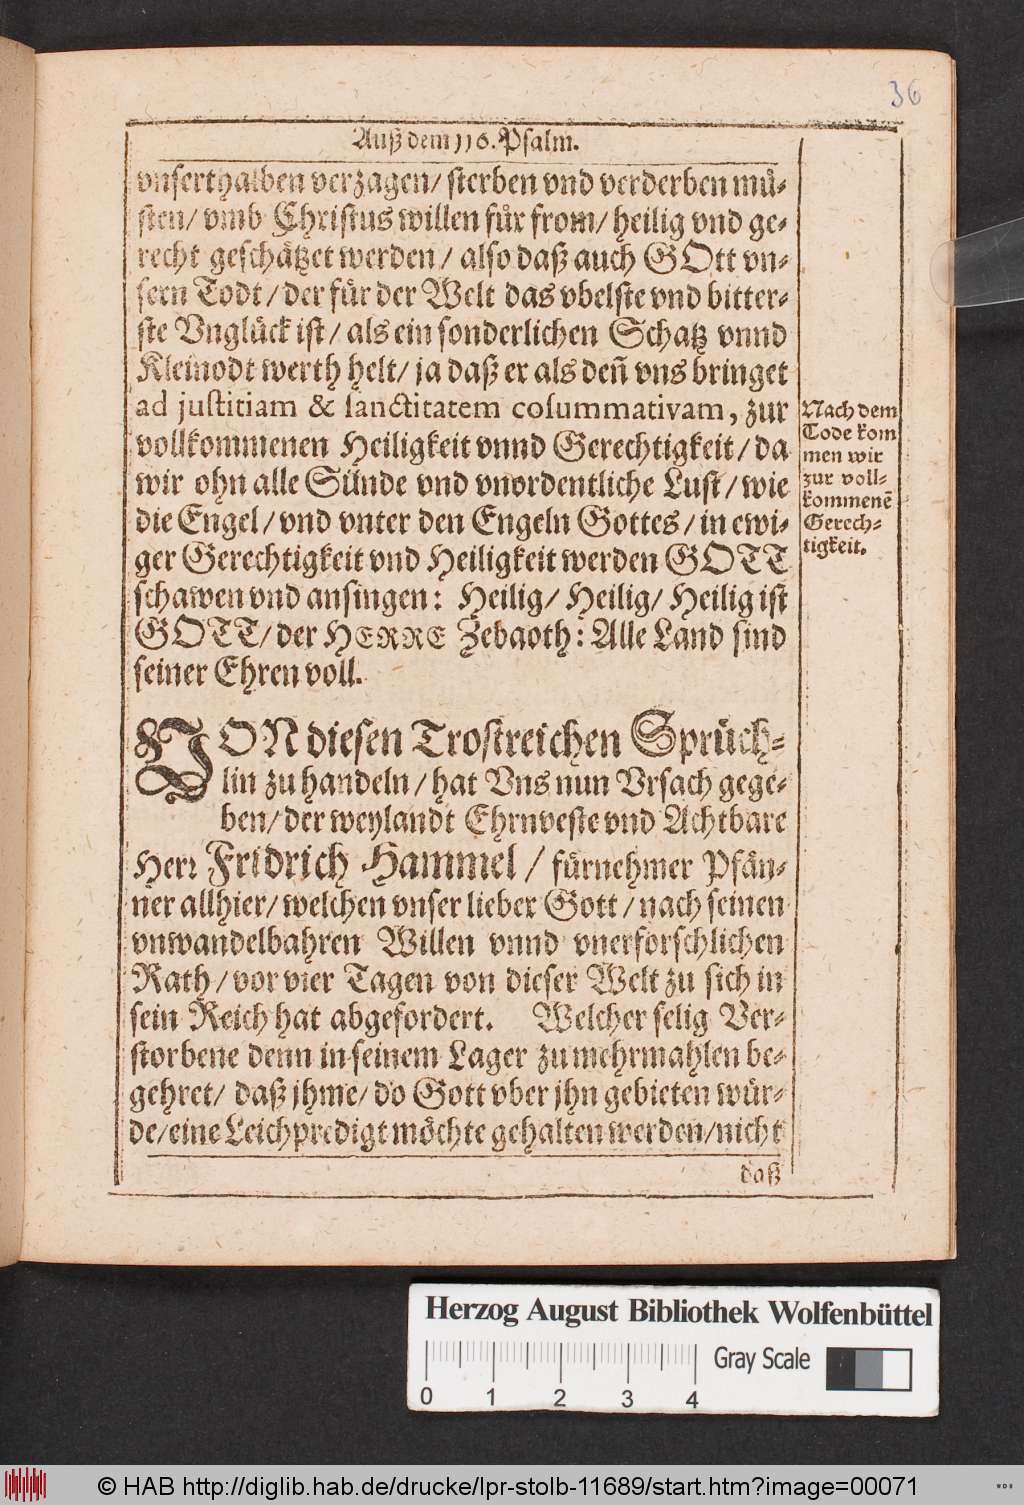 36
Auß dem 116. Psalm.
vnserthalben verzagen/ sterben vnd verderben mü-
sten/ vmb Christus willen für from/ heilig vnd ge-
recht geschätzet werden/ also daß auch GOtt vn-
sern Todt/ der für der Welt das vbelste vnd bitter-
ste Vnglück ist/ als ein sonderlichen Schatz vnnd
Kleinodt werth helt/ ja daß er als deñ vns bringet
ad justitiam & sanctitatem cosummativam, zur
vollkommenen Heiligkeit vnnd Gerechtigkeit/ da
wir ohn alle Sünde vnd vnordentliche Lust/ wie
die Engel/ vnd vnter den Engeln Gottes/ in ewi-
ger Gerechtigkeit vnd Heiligkeit werden GOTT
schawen vnd ansingen: Heilig/ Heilig/ Heilig ist
GOTT/ der HERRE Zebaoth: Alle Land sind
seiner Ehren voll.
Nach dem
Tode kom
men wir
zur voll-
kommenẽ
Gerech-
tigkeit.
VON diesen Trostreichen Sprüch-
lin zu handeln/ hat Vns nun Vrsach gege-
ben/ der weylandt Ehrnveste vnd Achtbare
Herr Fridrich Hammel/ fürnehmer Pfän-
ner allhier/ welchen vnser lieber Gott/ nach seinen
vnwandelbahren Willen vnnd vnerforschlichen
Rath/ vor vier Tagen von dieser Welt zu sich in
sein Reich hat abgefordert. Welcher selig Ver-
storbene denn in seinem Lager zu mehrmahlen be-
gehret/ daß jhme/ do Gott vber jhn gebieten wür-
de/ eine Leichpredigt möchte gehalten werden/ nicht
daß
Herzog August Bibliothek Wolfenbüttel
Gray Scale
0 1 2 3 4
© HAB http://diglib.hab.de/drucke/lpr-stolb-11689/start.htm?image=00071